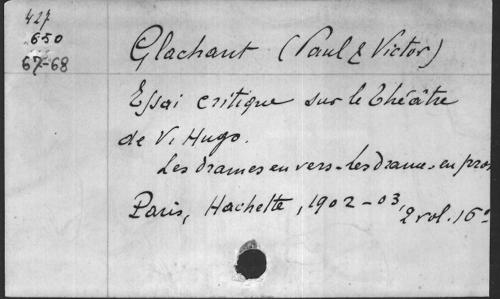 427
650
67-68
Glachant (Paul & Victor)
Essai critique sur le théâtre
de V. Hugo.
Les drames en vers - les drames en pros
Paris, Hachette, 1902-03, 2 vol. 16°